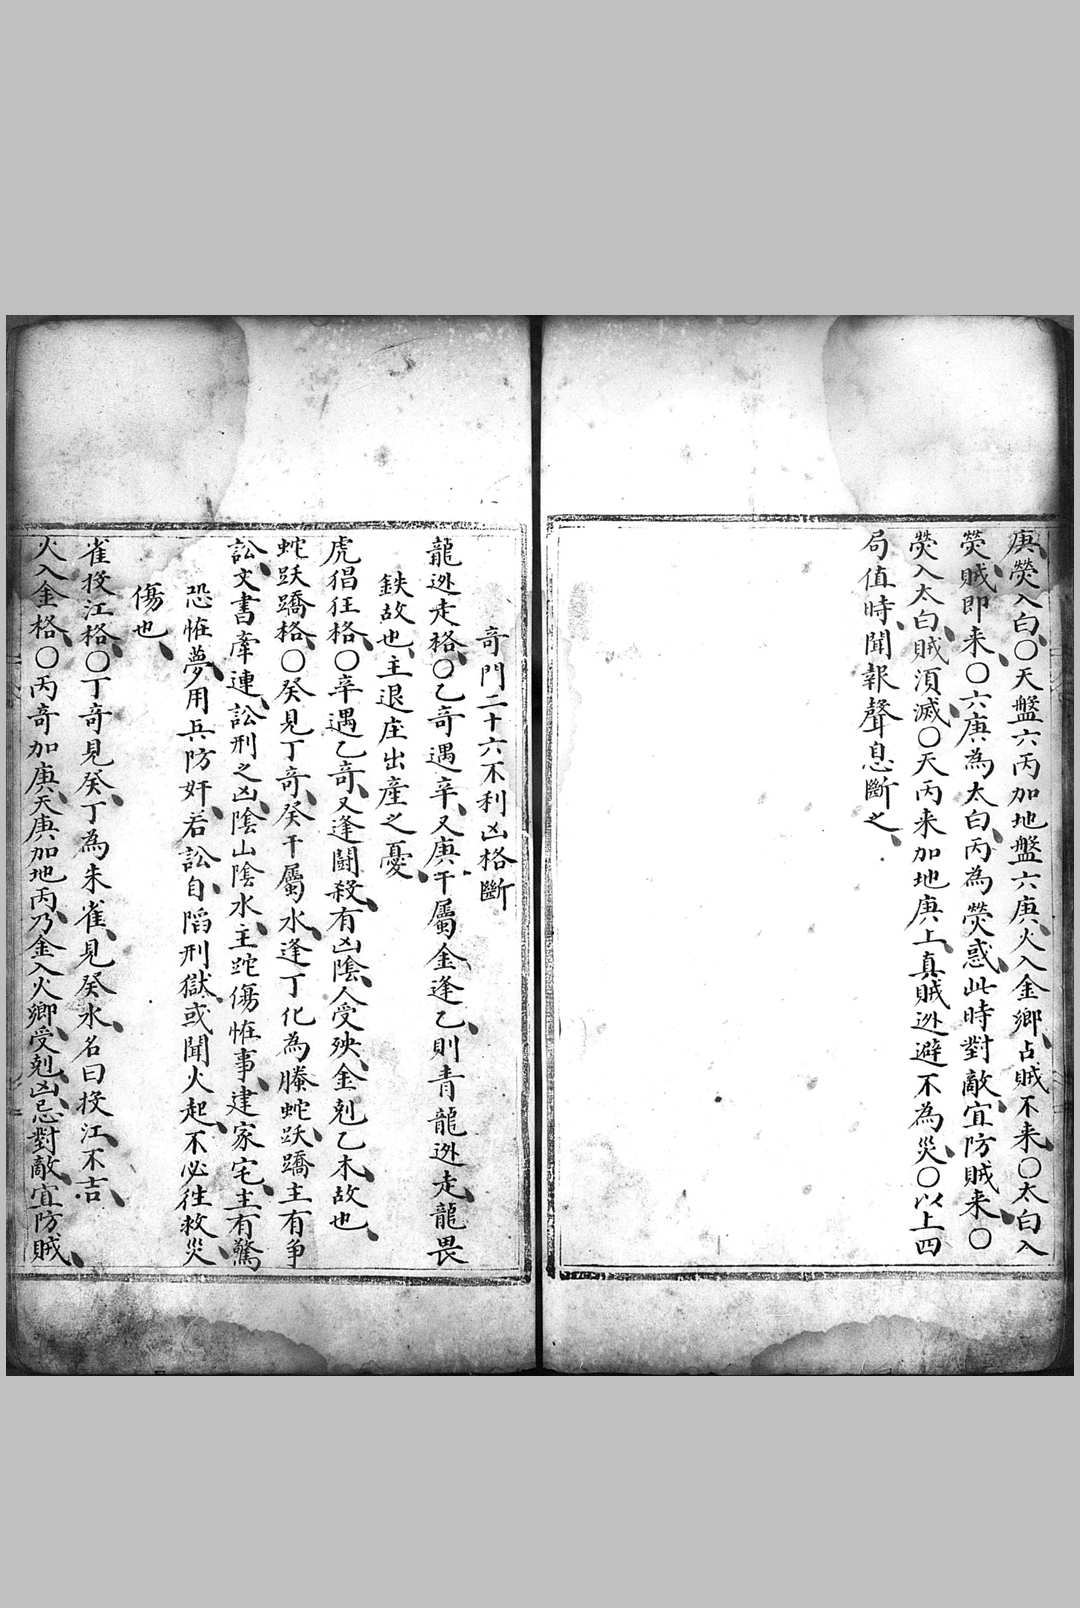 庚熒入白〇天盤六丙加地盤六庚火入金鄉占賊不来〇太白入
熒賊即来〇六庚為太白丙為熒惑此時對敵宜防賊来〇
熒入太白賊須滅〇天丙来加地庚上真賊迯避不為災〇以上四
局值時聞報聲息斷之
奇門二十六不利凶格斷
龍迯走格〇乙奇遇辛又庚干屬金逢乙則青龍迯走龍畏
鉄故也主退庄出產之憂
虎猖狂格〇辛遇乙奇又逢鬪殺有凶陰人受殃金剋乙木故也
蛇跃蹻格〇癸見丁奇癸干屬水逢丁化為螣蛇跃蹻主有争
訟文書牽連訟刑之凶陰山陰水主跎傷恠事建家宅主有驚
恐恠夢用兵防奸若訟自陷刑獄或聞火起不必徃救災
傷也
雀投江格〇丁奇見癸丁為朱雀見癸水名曰投江不吉
火入金格〇丙奇加庚天庚加地丙乃金入火鄉受剋凶忌對敵宜防賊